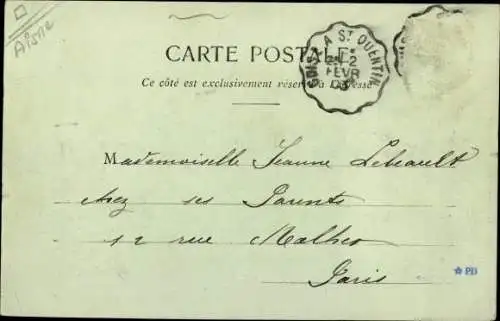 Aisne
CARTE POSTALE
Ce côté est exclusivement réservé à l'adresse
A ST QUENTIN
2
FEVR
Mademoiselle Jeanne Lehault
chez ses Parents
12 rue Malher
Paris
PD